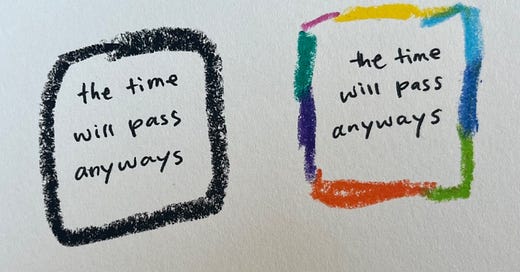 the time
will pass
anyways
the time
will pass
anyways